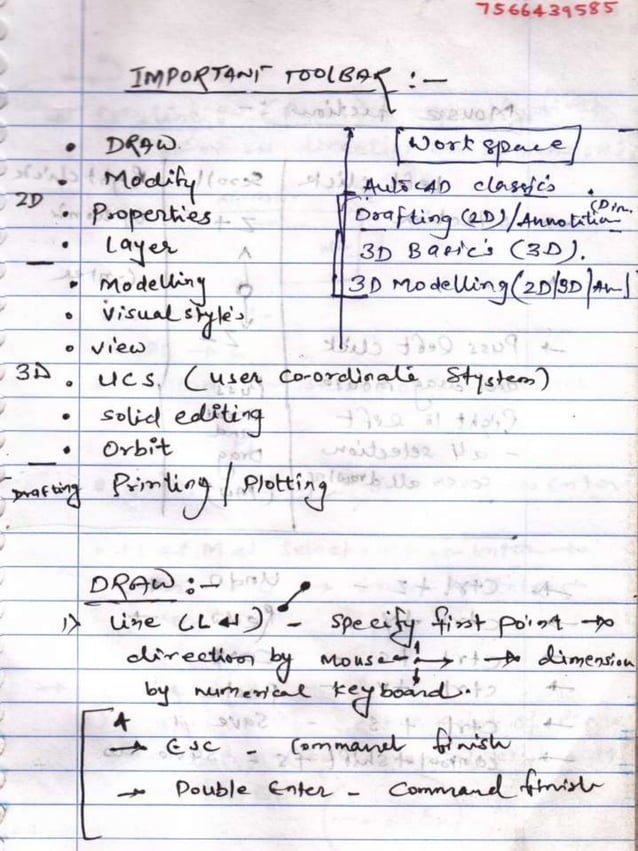 7566439585
IMPORTANT TOOLBAR :-
• DRAW
• Modify
2D • Properties
• Layer
• Modelling
• Visual style's
• view
3D • UCS. (user co-ordinate Stystem)
• solid editing
• Orbit
Drafting Printing / Plotting
Work space
AutoCAD classic's .
Drafting (2D) / Annotation (Dim.
3D Basic's (3D).
3D Modelling (2D/3D/An)
DRAW :-
1) Line (L ↵) - specify first point →
direction by mouse → → dimension
by numerical keyboard.
→ ESC - Command finish
→ Double Enter - Command finish